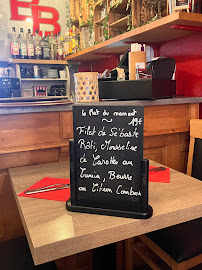 BB
Le Plat du moment
19€
Filet de Sébaste
Rôti, Mousseline
de Carotte au
Cumin, Beurre
au Citron Combava